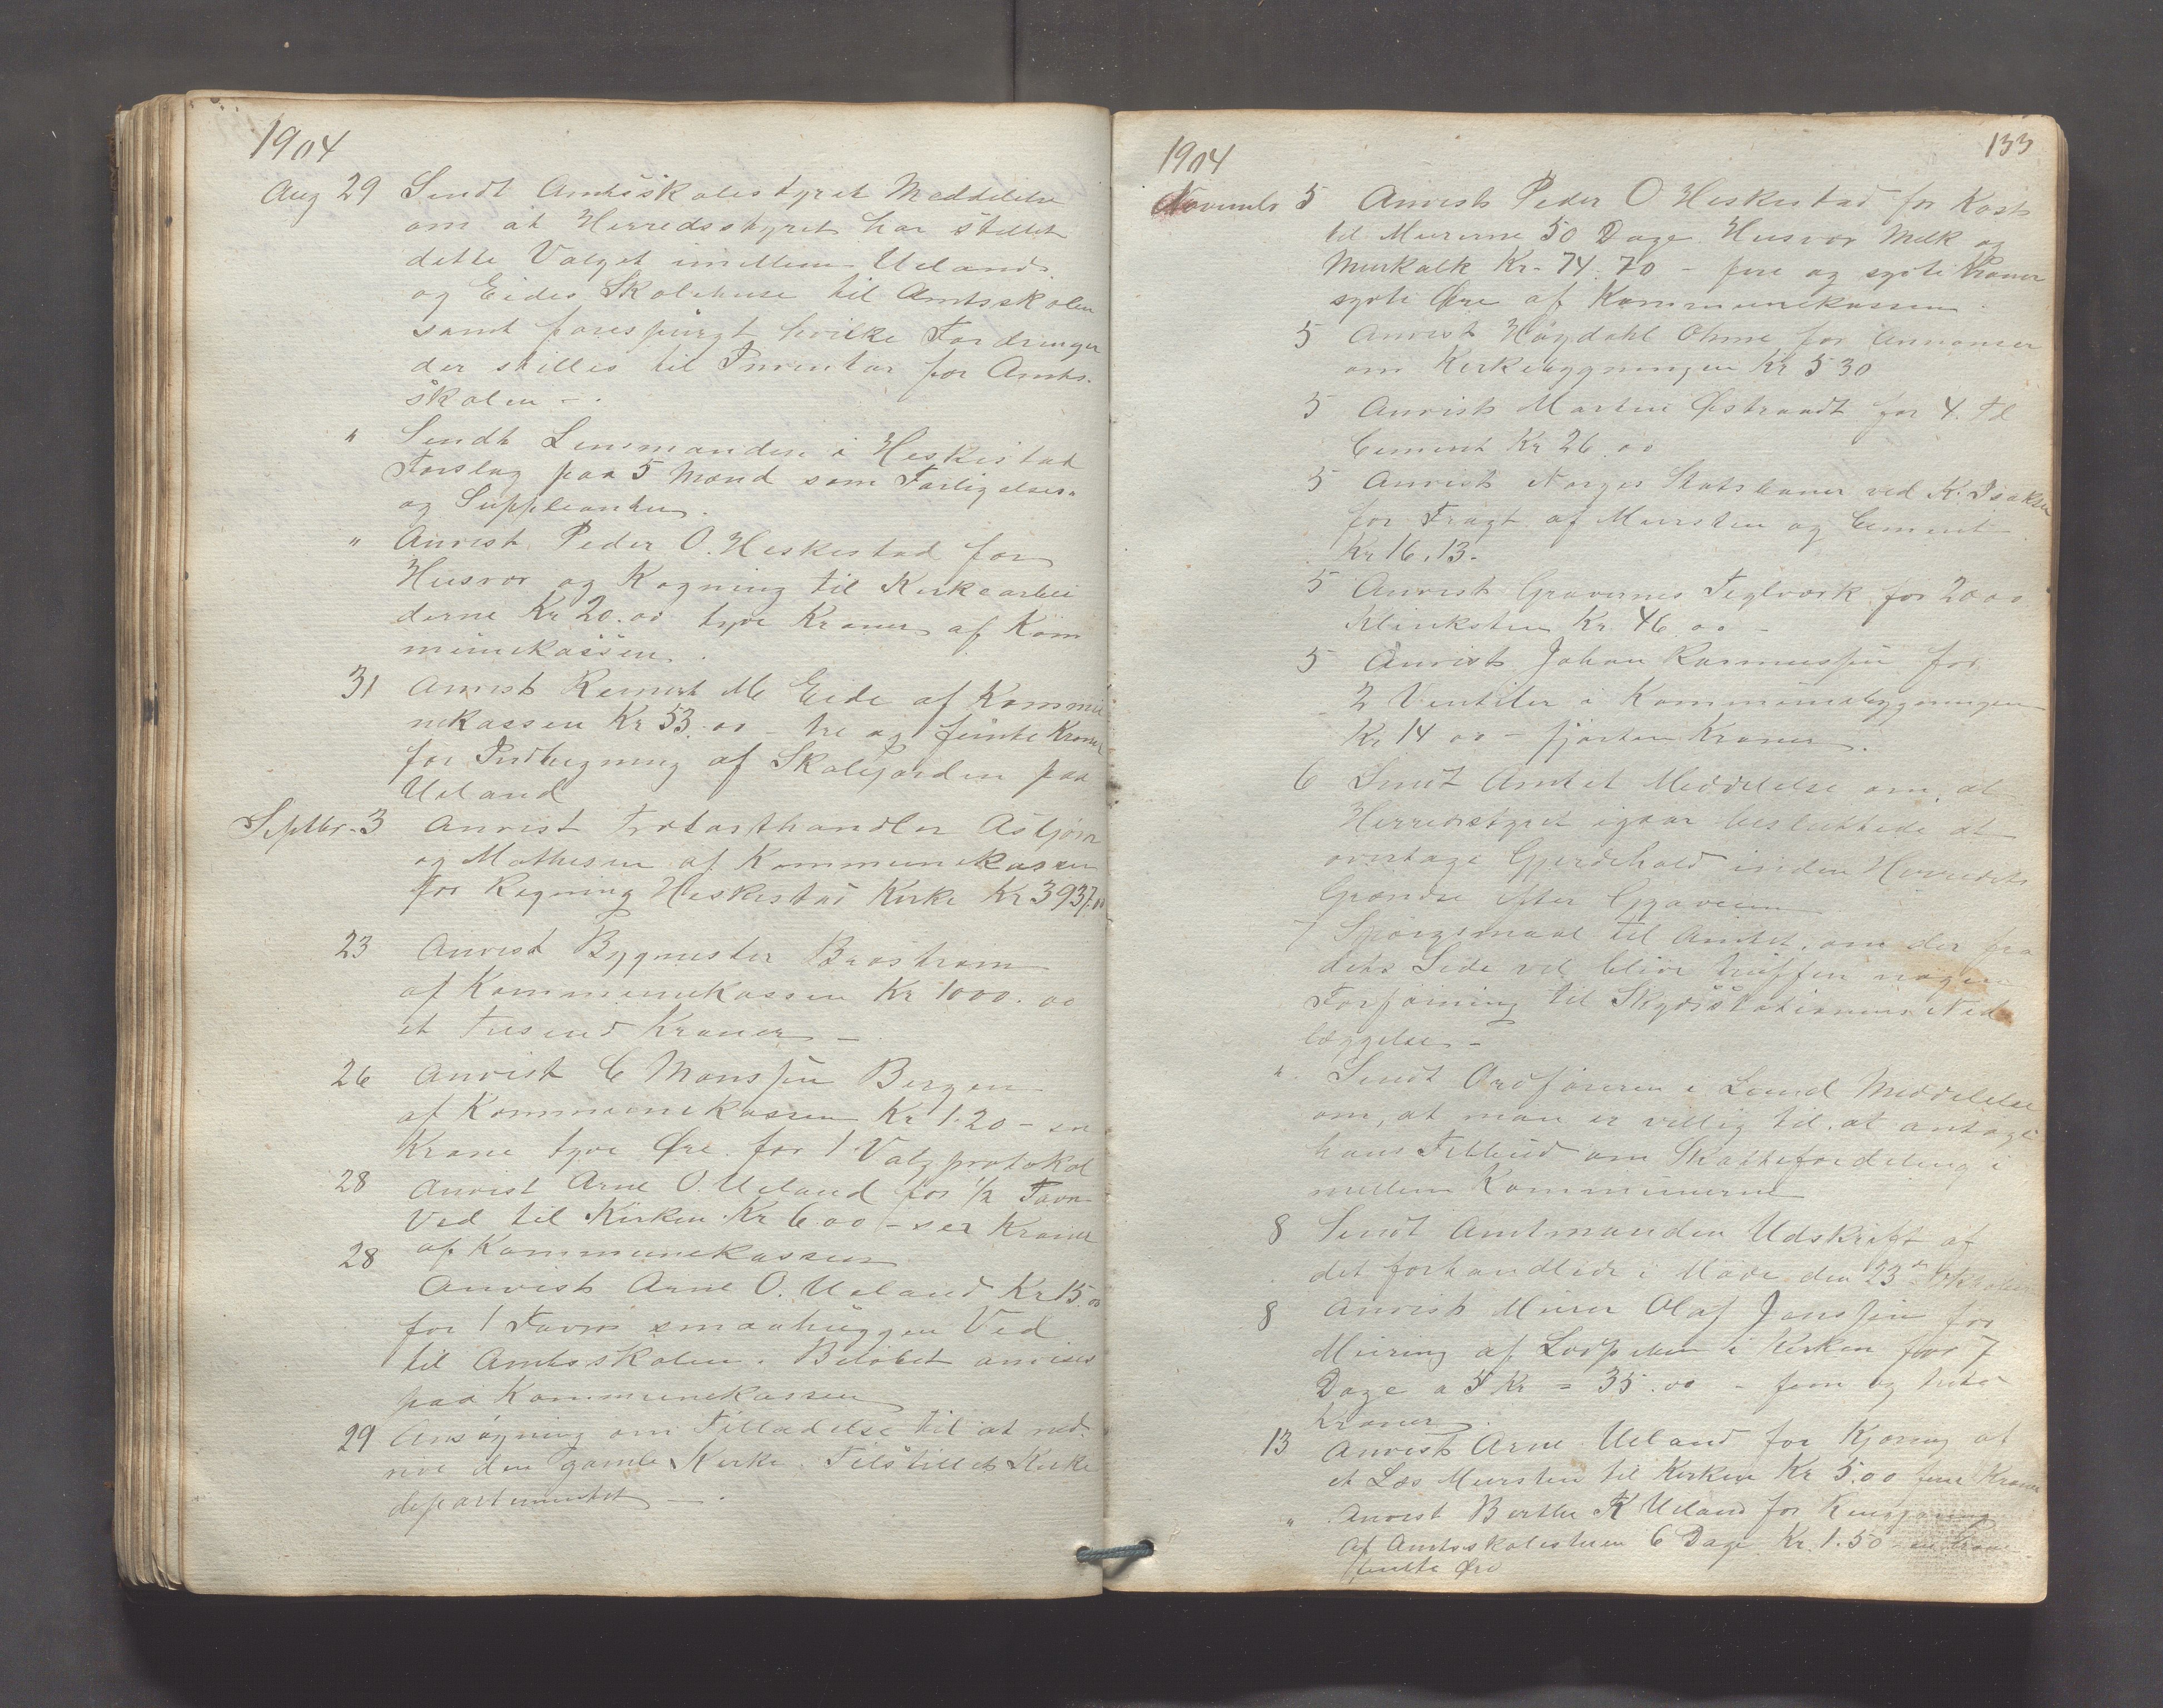 1904
Aug 29 Sendt Amtsskolestyret Meddelelse
om at Herredsstyret har stillet
dette Valget imellem Uelands
og Eides Skolehuse til Amtsskolen
samt forespurgt hvilke Fordringer
der stilles til Inventar for Amts-
skolen -.
" Sendt Lensmanden i Heskestad
Forslag paa 5 Mænd som Forligelses-
og Suppleanter.
" Anvist Peder O. Heskestad for
Husvær og Kogning til Kirkearbei
derne Kr 20.00 tyve Kroner af Kom
munekassen.
31 Anvist Reinert M Eide af Kommu
nekassen Kr 53.00 - tre og femti Kroner
for Indhegning af Skolejorden paa
Ueland
Septbr. 3 Anvist Trælasthandler Asbjørn
og Mathesen af Kommunekassen
for Regning Heskestad Kirke Kr 3937.00
23 Anvist Bygmester Braström
af Kommunekassen Kr 1000.00
et Tusend Kroner -
26 Anvist C Monssen Bergen
af Kommunekassen Kr 1.20 - en
Krone tyve Øre for 1 Valgprotokol
28 Anvist Arne O. Ueland for 1/2 Favn
Ved til Kirken Kr 6.00 - sex Kroner
af Kommunekassen
28 Anvist Arne O. Ueland Kr 15.00
for 1 Favn smaahuggen Ved
til Amtsskolen. Beløbet anvises
paa Kommunekassen
29 Ansøgning om Tilladelse til at ned-
rive den gamle Kirke tilstillet Kirke
departementet -.
133
1904
Novembr 5 Anvist Peder O Heskestad for Kost
til Murerne 50 Dage Husvær Melk og
Murkalk Kr. 74.70 - fire og sytti Kroner
sytti Øre af Kommunekassen.
5 Anvist Høgdahl Ohme for Annoncer
om Kirkebygningen Kr 5 30
5 Anvist Martin Østraadt for 4. Td
Cement Kr 26.00
5 Anvist Norges Statsbaner ved K. Isaksen
for Fragt af Mursten og Cement
Kr 16.13.
5 Anvist Gravernes Teglværk for 2000
Klinksten Kr. 46.00 -
5 Anvist Johan Rasmussen for
2 Ventiler i Kommunebygningen
Kr 14 00 - fjorten Kroner.
6 Sendt Amtet Meddelelse om, at
Herredsstyret igaar besluttede at
overtage Gjerdehold inden Herredets
Grændse efter
7 Spørgsmaal til Amtet, om der fra
dets Side vil blive truffen nogen
Forføining til Skydsstationens Ned
læggelse -
" Sendt Ordføreren i Lund Meddelelse
om, at man er villig til at antage
hans Tilbud om Skattefordeling i
mellem Kommunerne
8 Sendt Amtmanden Udskrift af
det forhandlede i Møde den 23de
8 Anvist Murer Olaf Janssen for
Muring af i Kirken for 7
Dage a 5 Kr = 35.00 - fem og tredve
Kroner.
13 Anvist Arne Ueland for Kjøring af
et Læs Mursten til Kirken Kr 5.00 fem Kroner
" Anvist Berthe K Ueland for Rengjøring
af Amtsskolestuen 6 Dage Kr. 1.50 en Krone
femti Øre